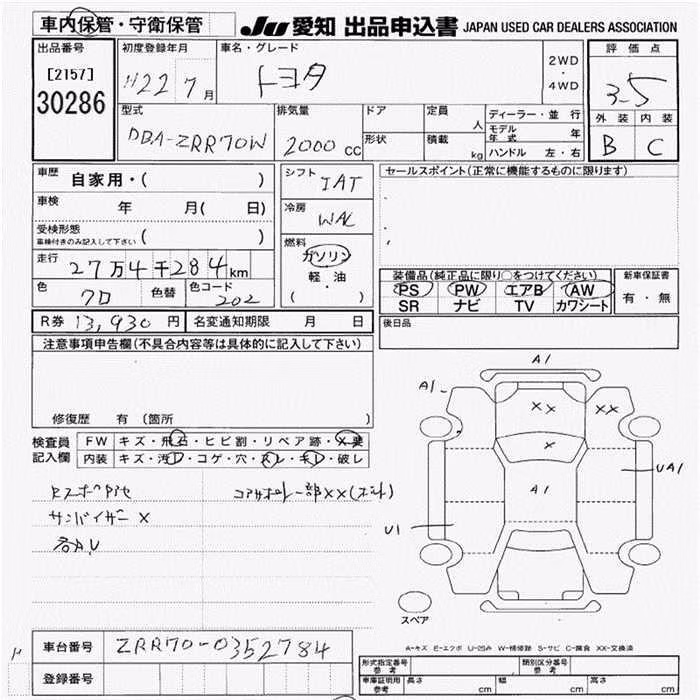 車内保管・守衛保管 JU 愛知 出品申込書 JAPAN USED CAR DEALERS ASSOCIATION
出品番号 初度登録年月 車名・グレード 2WD・4WD 評価点
[2157] H22 7月 トヨタ 3-5
30286
型式 排気量 ドア 定員 人 ディーラー・並行 外装 内装
DBA-ZRR70W 2000cc 形状 積載 kg モデル年式 年 B C
ハンドル 左・右
車歴 自家用・( ) シフト IAT セールスポイント(正常に機能するものに限ります)
車検 年 月( 日) 冷房 WAC
受検形態 ( )
車検付きのみ記入して下さい
燃料 ガソリン 軽・油 ( )
走行 27万4千284km
色 クロ 色替 色コード 202
装備品(純正品に限り○をつけてください) 新車保証書
PS PW エアB AW 有・無
SR ナビ TV カワシート
R券 13,930円 名変通知期限 月 日 後日品
注意事項申告欄(不具合内容等は具体的に記入して下さい)
修復歴 有 (箇所 )
検査員記入欄 FW キズ・飛石・ヒビ割・リペア跡・X要
内装 キズ・汚レ・コゲ・穴・スレ・キレ・破レ
コアサポート一部XX(ボルト)
サンバイザーX
各A.U
A1
A1
XX XX
X
A1
UA1
U1
スペア
A-キズ E-エクボ U-凹み W-補修跡 S-サビ C-腐食 XX-交換済
車台番号 ZRR70-0352784
登録番号
形式指定番号 参考 類別区分番号 参考
車庫証明用 参考 長さ cm 幅 cm 高さ cm